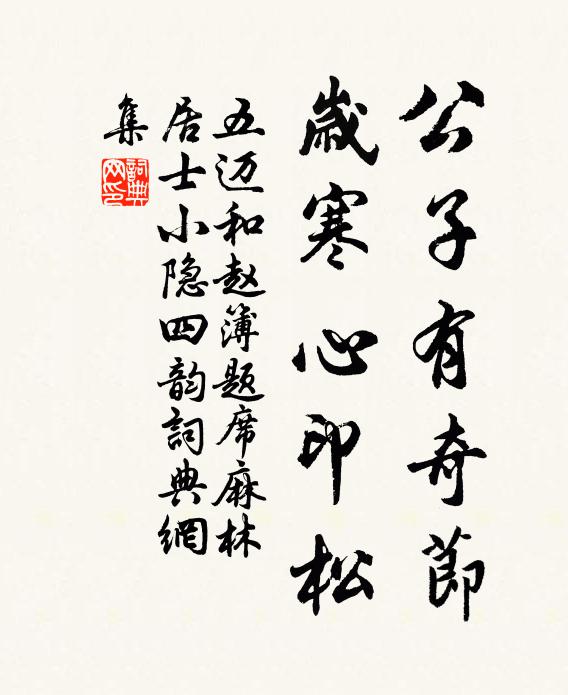 公子有奇節
歲寒心印松
五迈和赵簿题席麻林
居士小隐四韵詞典網
集
詞典
网印